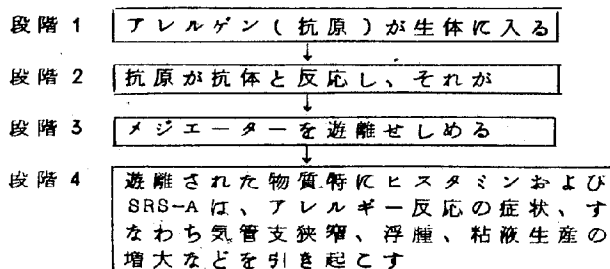 段階 1 アレルゲン(抗原)が生体に入る
段階 2 抗原が抗体と反応し、それが
段階 3 メジエーターを遊離せしめる
段階 4 遊離された物質特にヒスタミンおよび
SRS-Aは、アレルギー反応の症状、す
なわち気管支狭窄、浮腫、粘液生産の
増大などを引き起こす